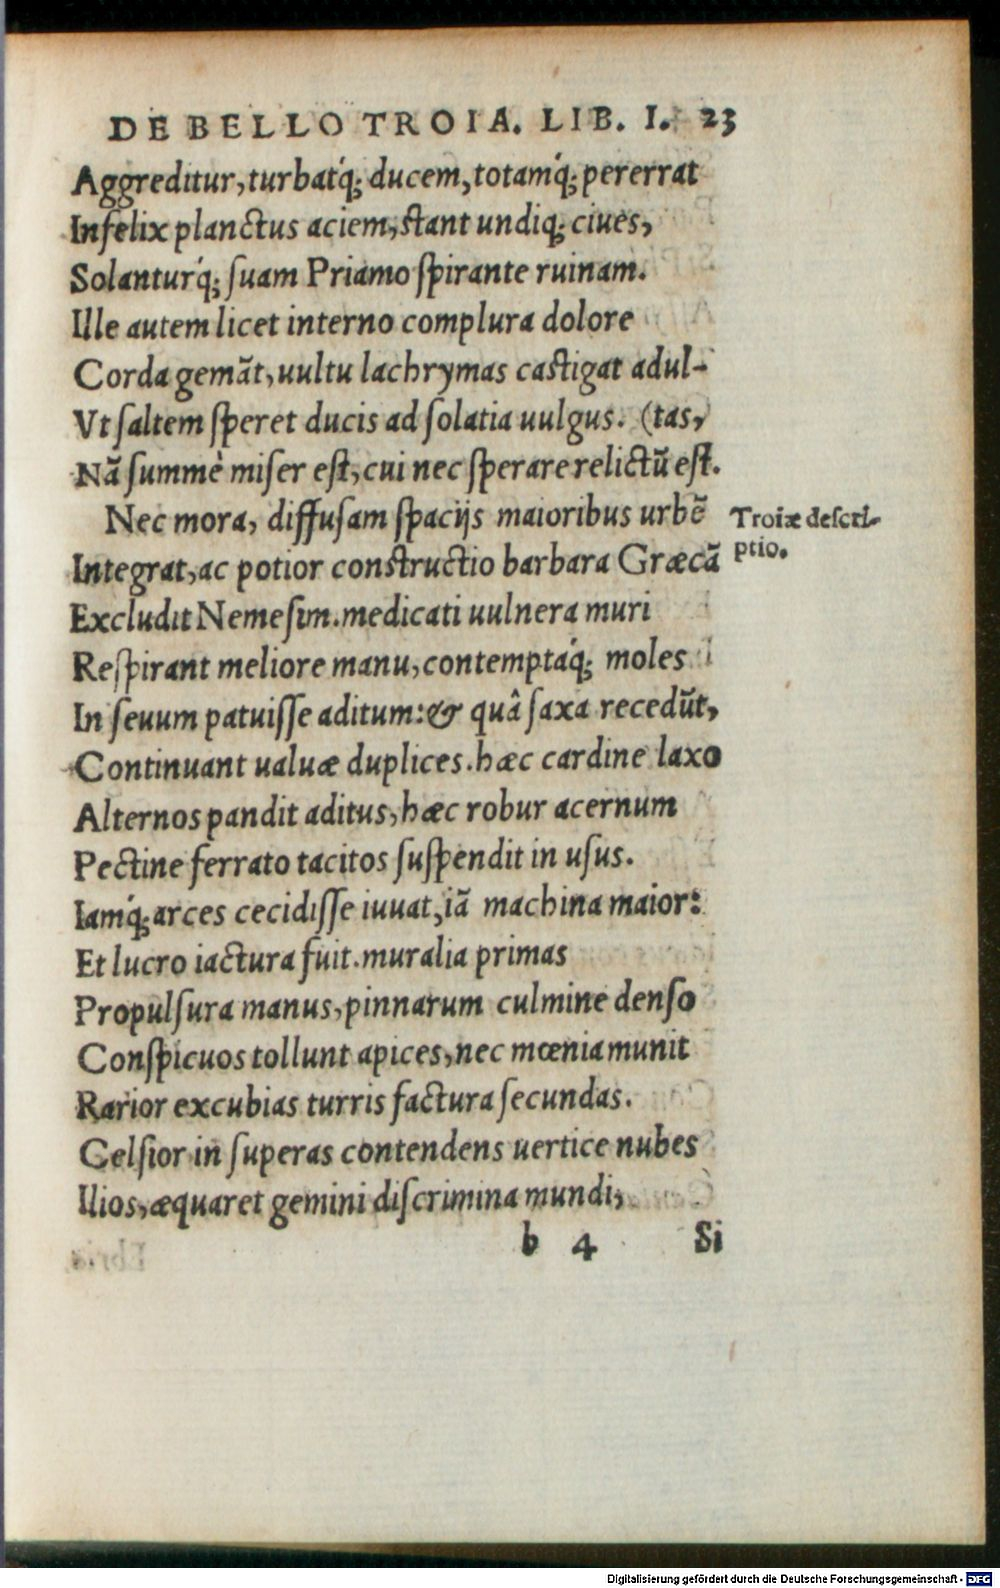 DE BELLO TROIA. LIB. I. 23
Aggreditur, turbatq́; ducem, totamq́; pererrat
Infelix planctus aciem, stant undiq; ciues,
Solanturq́; ſuam Priamo ſpirante ruinam.
Ille autem licet interno complura dolore
Corda gemãt, uultu lachrymas caſtigat adul-
Vt ſaltem ſperet ducis ad ſolatia uulgus. (tas,
Nã ſummè miſer eſt, cui nec ſperare relictũ eſt.
Nec mora, diffuſam ſpacijs maioribus urbẽ
Troiæ deſcri-
ptio.
Integrat, ac potior conſtructio barbara Græcã
Excludit Nemeſim. medicati uulnera muri
Reſpirant meliore manu, contemptáq; moles
In ſeuum patuiſſe aditum: & quâ ſaxa recedũt,
Continuant ualuæ duplices. hæc cardine laxo
Alternos pandit aditus, hæc robur acernum
Pectine ferrato tacitos ſuſpendit in uſus.
Iamq́; arces cecidiſſe iuuat, iã machina maior:
Et lucro iactura fuit. muralia primas
Propulſura manus, pinnarum culmine denſo
Conſpicuos tollunt apices, nec mœnia munit
Rarior excubias turris factura ſecundas.
Celſior in ſuperas contendens uertice nubes
Ilios, æquaret gemini diſcrimina mundi,
b 4 Si
Digitalisierung gefördert durch die Deutsche Forschungsgemeinschaft - DFG